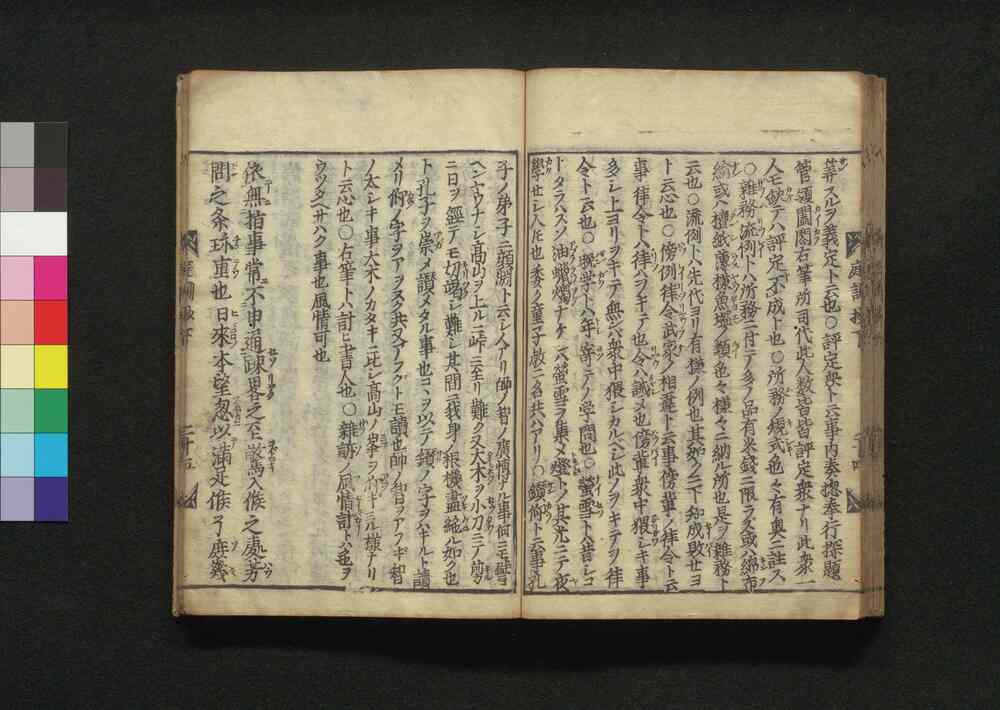 筭スルヲ義定ト云也〇評定衆ト云事内奏惣奉行探題
管領闔閭右筆所司代此人数皆皆評定衆ナリ此衆一
人モ欠テハ評定不成ト也〇所務ノ様式色々有奥ニ註ス
〇雜務流例トハ所務ニ付テ多ノ品有米錢ニ限ラズ或ハ綿布
絹或ハ檀紙薄様魚塩ノ類色々様々ニ納ル所也是ヲ雜務ト
云也〇流例ト先代ヨリ有様ノ例也其如ク二下知成敗せヨ
ト云心也〇傍例律令武家ノ相薩ト云事傍輩ノ律令ト云
事律令トハ律ハヲキテ也令ハ誡メ也傍輩衆中猥シキ事
多シ上ヨリヲキテ無レバ衆中猥シカルヘシ此ノヲキテヲ律
令ト云也〇擬学トハ年寄テノ学問也〇螢雪ト昔シコ
トタラハスノ油蠟燭ナケレハ螢雪ヲ集メ燈トノ其光ニテ夜
學せシ人氏也委ク童子教ニ名共ハアリ〇鑽仰ト云事孔
子ノ弟子ニ顔淵ト云シ人アリ師ノ智ノ廣博ナル事何ニモ譬ヨ
ヘンヤウナシ高山ヲ上ルニ峠ニ至リ難ク又大木ヲ小刀ニテ削ツ
ニ日ヲ經テモ切竭シ難シ其間ニ我身ハ根機盡純ル如ク也
ト孔子ヲ崇メ讃メタル事也コヽヲ以テ鑽ノ字ヲハキルト讀
メリ仰ノ字ヲアヲスタ共又アフクトモ讀也師ノ智ヲアフギ智
ノ太シキ事大木ノカタキニ比シ高山ノ峯ヲ仰キミル様ナリ
ト云心也〇右筆トハ討ヒ書人也〇雜訴ノ風情討トハ也ヲ
ウツタヘサハク事也風情可也
依無指事常不申通疎畧之至驚入候之處芳
問之条珎重也日來本望忽以滿足候了庶幾
庭訓抄下
二十五